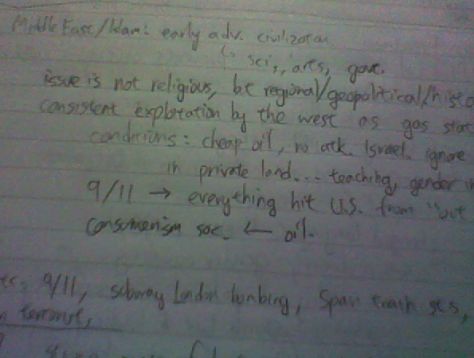 Middle East/Islam: early adv. civilization
↳ sci's, arts, govt.
issue is not religious, bt regional/geopolitical/histo
consistent exploitation by the west as gas stat
conditions: cheap oil, no atk. Israel. ignore
in private land... teaching, gender
9/11 → everything hit U.S. from "out
consumerism soc. ← oil.
9/11, subway London bombing, Spain train
terrorist,